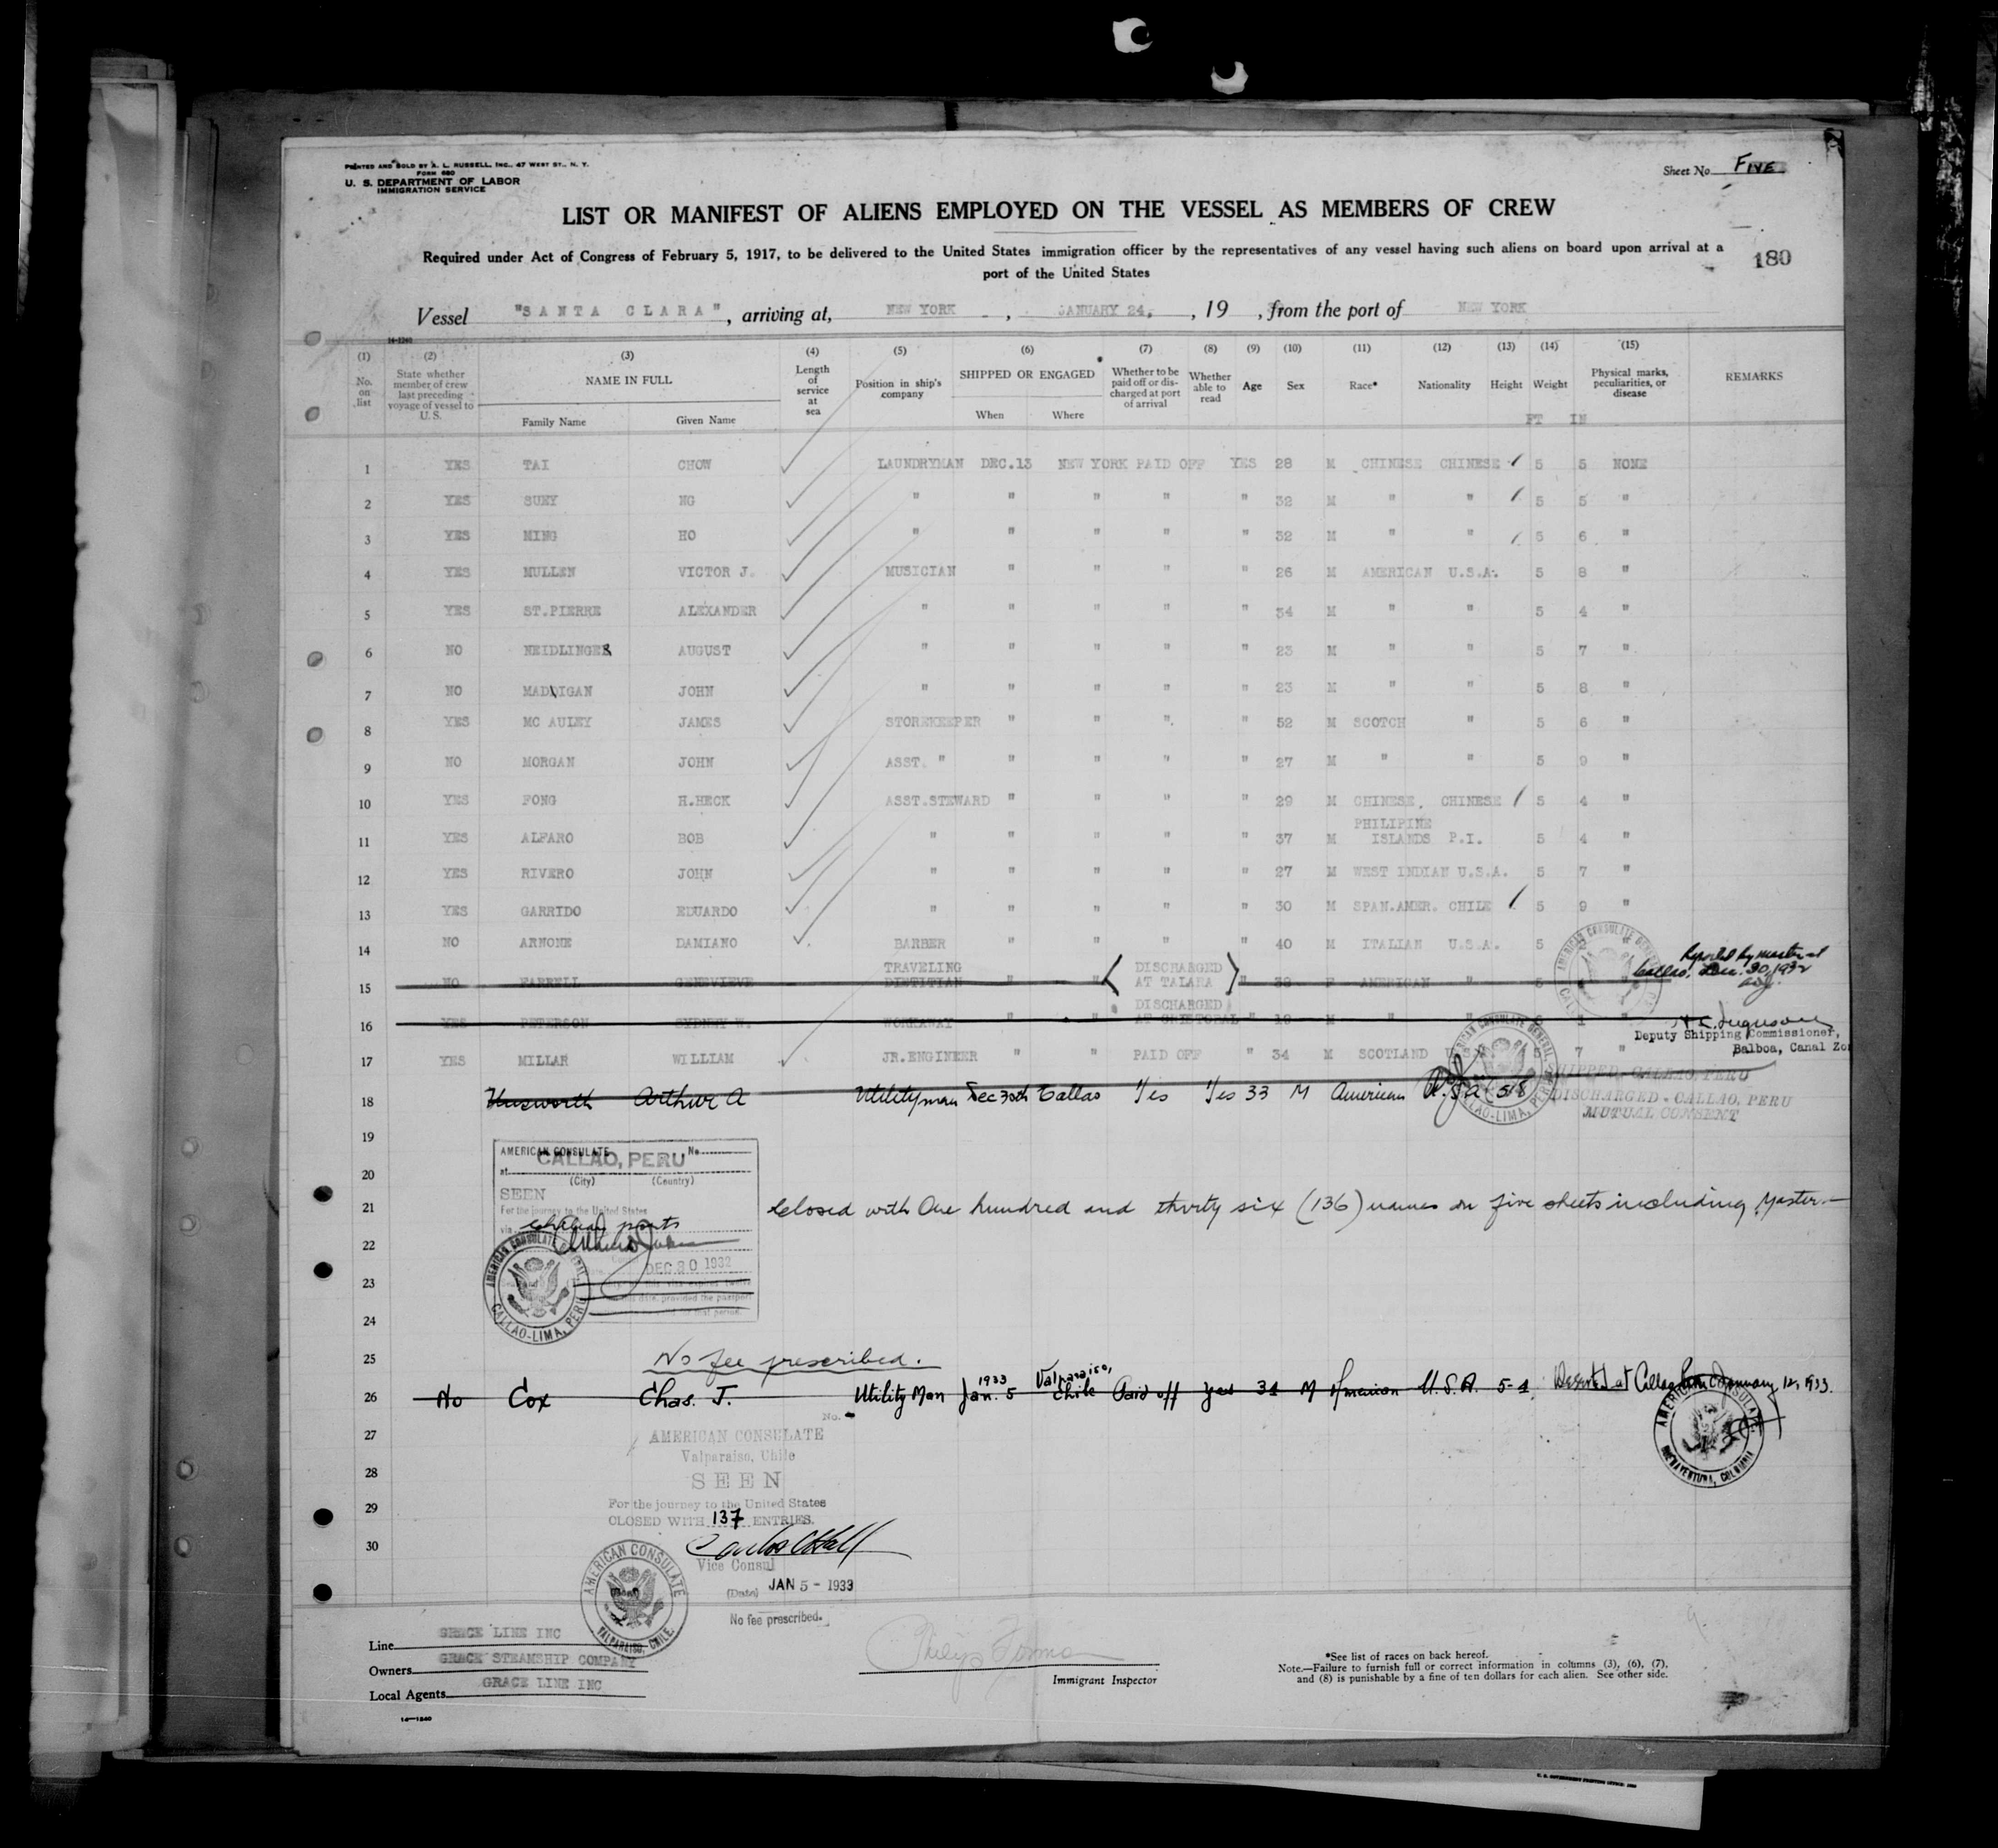 PRINTED AND SOLD BY A. L. RUSSELL, INC., 47 WEST ST., N. Y.
FORM 680
U. S. DEPARTMENT OF LABOR
IMMIGRATION SERVICE
Sheet No. FIVE
LIST OR MANIFEST OF ALIENS EMPLOYED ON THE VESSEL AS MEMBERS OF CREW
Required under Act of Congress of February 5, 1917, to be delivered to the United States immigration officer by the representatives of any vessel having such aliens on board upon arrival at a
port of the United States
180
Vessel "SANTA CLARA", arriving at, NEW YORK, JANUARY 24, , 19 , from the port of NEW YORK
14-1240
(1) (2) (3) (4) (5) (6) (7) (8) (9) (10) (11) (12) (13) (14) (15)
No. on list
State whether member of crew last preceding voyage of vessel to U. S.
NAME IN FULL
Family Name Given Name
Length of service at sea
Position in ship's company
SHIPPED OR ENGAGED
When Where
Whether to be paid off or discharged at port of arrival
Whether able to read
Age Sex Race* Nationality Height Weight
Physical marks, peculiarities, or disease
REMARKS
FT IN
1 YES TAI CHOW LAUNDRYMAN DEC.13 NEW YORK PAID OFF YES 28 M CHINESE CHINESE 5 5 NONE
2 YES SUEY NG " " " " " 32 M " " 5 5 "
3 YES MING HO " " " " " 32 M " " 5 6 "
4 YES MULLEN VICTOR J. MUSICIAN " " " " 26 M AMERICAN U.S.A. 5 8 "
5 YES ST.PIERRE ALEXANDER " " " " " 34 M " " 5 4 "
6 NO NEIDLINGER AUGUST " " " " " 23 M " " 5 7 "
7 NO MADDIGAN JOHN " " " " " 23 M " " 5 8 "
8 YES MC AULEY JAMES STOREKEEPER " " " " 52 M SCOTCH " 5 6 "
9 NO MORGAN JOHN ASST. " " " " " 27 M " " 5 9 "
10 YES FONG H.HECK ASST.STEWARD " " " " 29 M CHINESE, CHINESE 5 4 "
11 YES ALFARO BOB " " " " " 37 M PHILIPINE ISLANDS P.I. 5 4 "
12 YES RIVERO JOHN " " " " " 27 M WEST INDIAN U.S.A. 5 7 "
13 YES GARRIDO EDUARDO " " " " " 30 M SPAN.AMER. CHILE 5 9 "
14 NO ARNONE DAMIANO BARBER " " " " 40 M ITALIAN U.S.A. 5 2 "
15 NO FARRELL GENEVIEVE TRAVELING DIETITIAN " " (DISCHARGED AT TALARA) " 38 F AMERICAN "
Callao, Dec. 30, 1932
16 YES PETERSON SYDNEY W. WORKAWAY " " DISCHARGED AT CRISTOBAL " 19 M " "
Deputy Shipping Commissioner,
Balboa, Canal Zo
17 YES MILLAR WILLIAM JR.ENGINEER " " PAID OFF " 34 M SCOTLAND U.S.A. 5 7 "
18 Arthur A Utilityman Dec 30th Callao Yes Yes 33 M American U.S.A. 5/8
SHIPPED - CALLAO, PERU
DISCHARGED - CALLAO, PERU
MUTUAL CONSENT
19
AMERICAN CONSULATE No.
at CALLAO, PERU
(City) (Country)
20
SEEN
For the journey to the United States
21 Closed with One hundred and thirty six (136) names on five sheets including Master.
via Chilean ports
22
DEC 30 1932
23
24
AMERICAN CONSULATE GENERAL CALLAO-LIMA, PERU
25 No fee prescribed.
26 No Cox Chas. J. Utility Man Jan. 5 1933 Valparaiso, Chile Paid off yes 31 M American U.S.A. 5-4 Deserted at Callao January 12, 1933.
AMERICAN CONSULATE BUENAVENTURA, COLOMBIA
No.
27 AMERICAN CONSULATE
Valparaiso, Chile
28 SEEN
29 For the journey to the United States
CLOSED WITH 137 ENTRIES.
30
Vice Consul
(Date) JAN 5 - 1933
No fee prescribed.
AMERICAN CONSULATE VALPARAISO, CHILE.
Line GRACE LINE INC
Owners GRACE STEAMSHIP COMPANY
Local Agents GRACE LINE INC
14—1240
Immigrant Inspector
*See list of races on back hereof.
Note.—Failure to furnish full or correct information in columns (3), (6), (7),
and (8) is punishable by a fine of ten dollars for each alien. See other side.